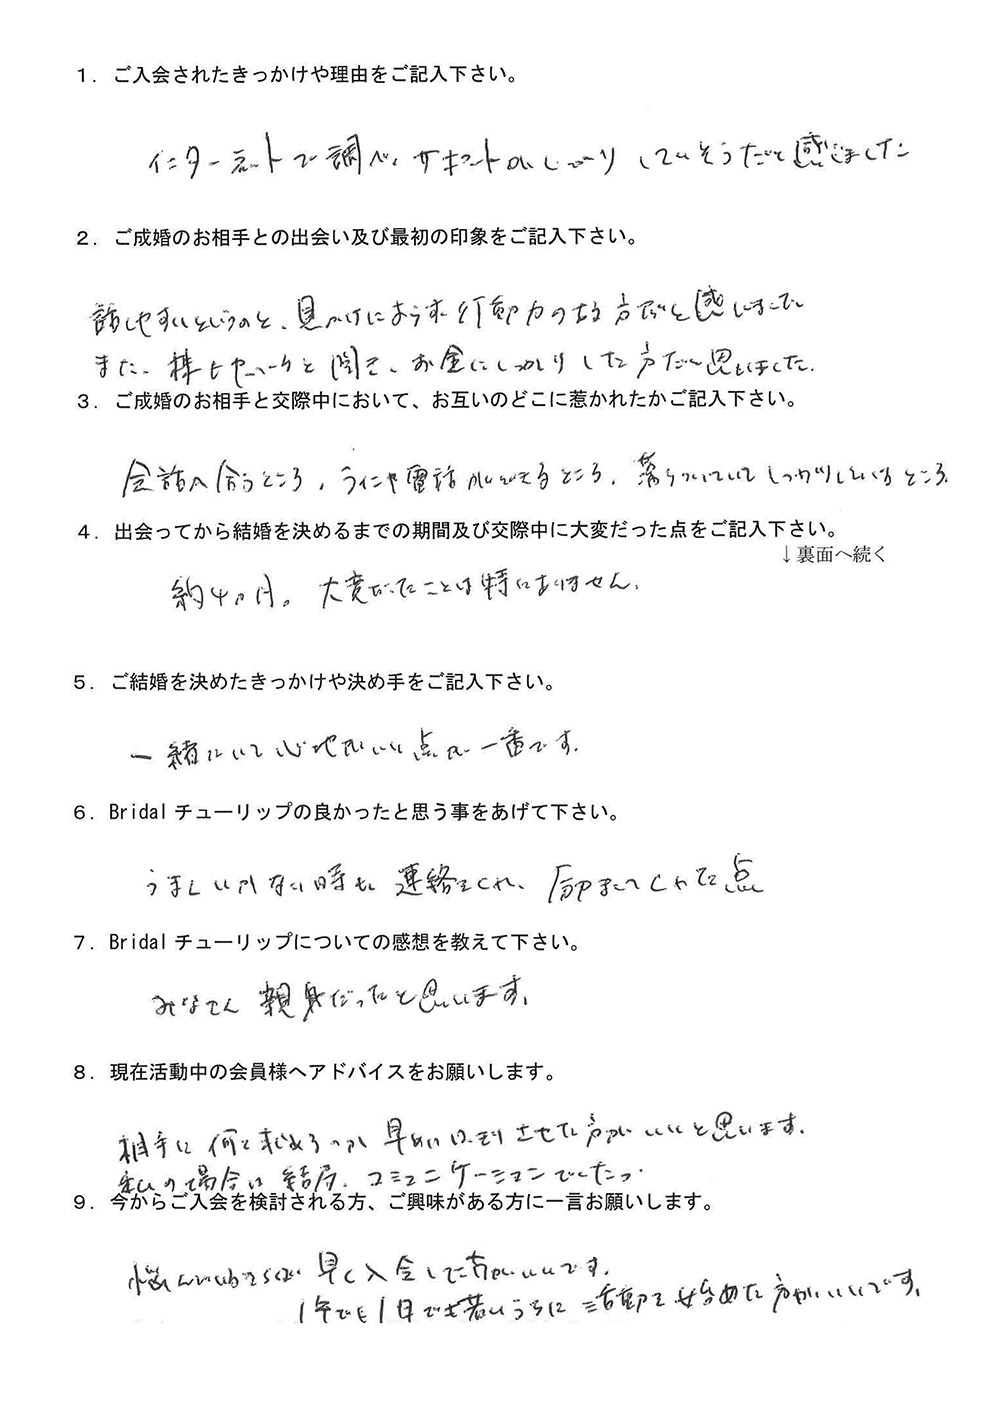 １．ご入会されたきっかけや理由をご記入下さい。
インターネットで調べ、サポートがしっかりしていそうだと感じました
２．ご成婚のお相手との出会い及び最初の印象をご記入下さい。
話しやすいというのと、見かけによらず行動力のある方だと感じました
また、株もやっていると聞き、お金にしっかりした方だと思いました。
３．ご成婚のお相手と交際中において、お互いのどこに惹かれたかご記入下さい。
会話が合うところ、ラインや電話ができるところ、落ちついていてしっかりしているところ
４．出会ってから結婚を決めるまでの期間及び交際中に大変だった点をご記入下さい。
↓裏面へ続く
約4ヵ月。大変だったことは特にありません。
５．ご結婚を決めたきっかけや決め手をご記入下さい。
一緒にいて心地がいい点が一番です。
６．Bridalチューリップの良かったと思う事をあげて下さい。
うまくいかない時も連絡をくれ、励ましてくれた点
７．Bridalチューリップについての感想を教えて下さい。
みなさん親身だったと思います。
８．現在活動中の会員様へアドバイスをお願いします。
相手に何を求めるのか早めにはっきりさせた方がいいと思います。
私の場合は結局、コミュニケーションでした。
９．今からご入会を検討される方、ご興味がある方に一言お願いします。
悩んでいるくらい早く入会した方がいいです。
1年でも1日でも若いうちに活動を始めた方がいいです。